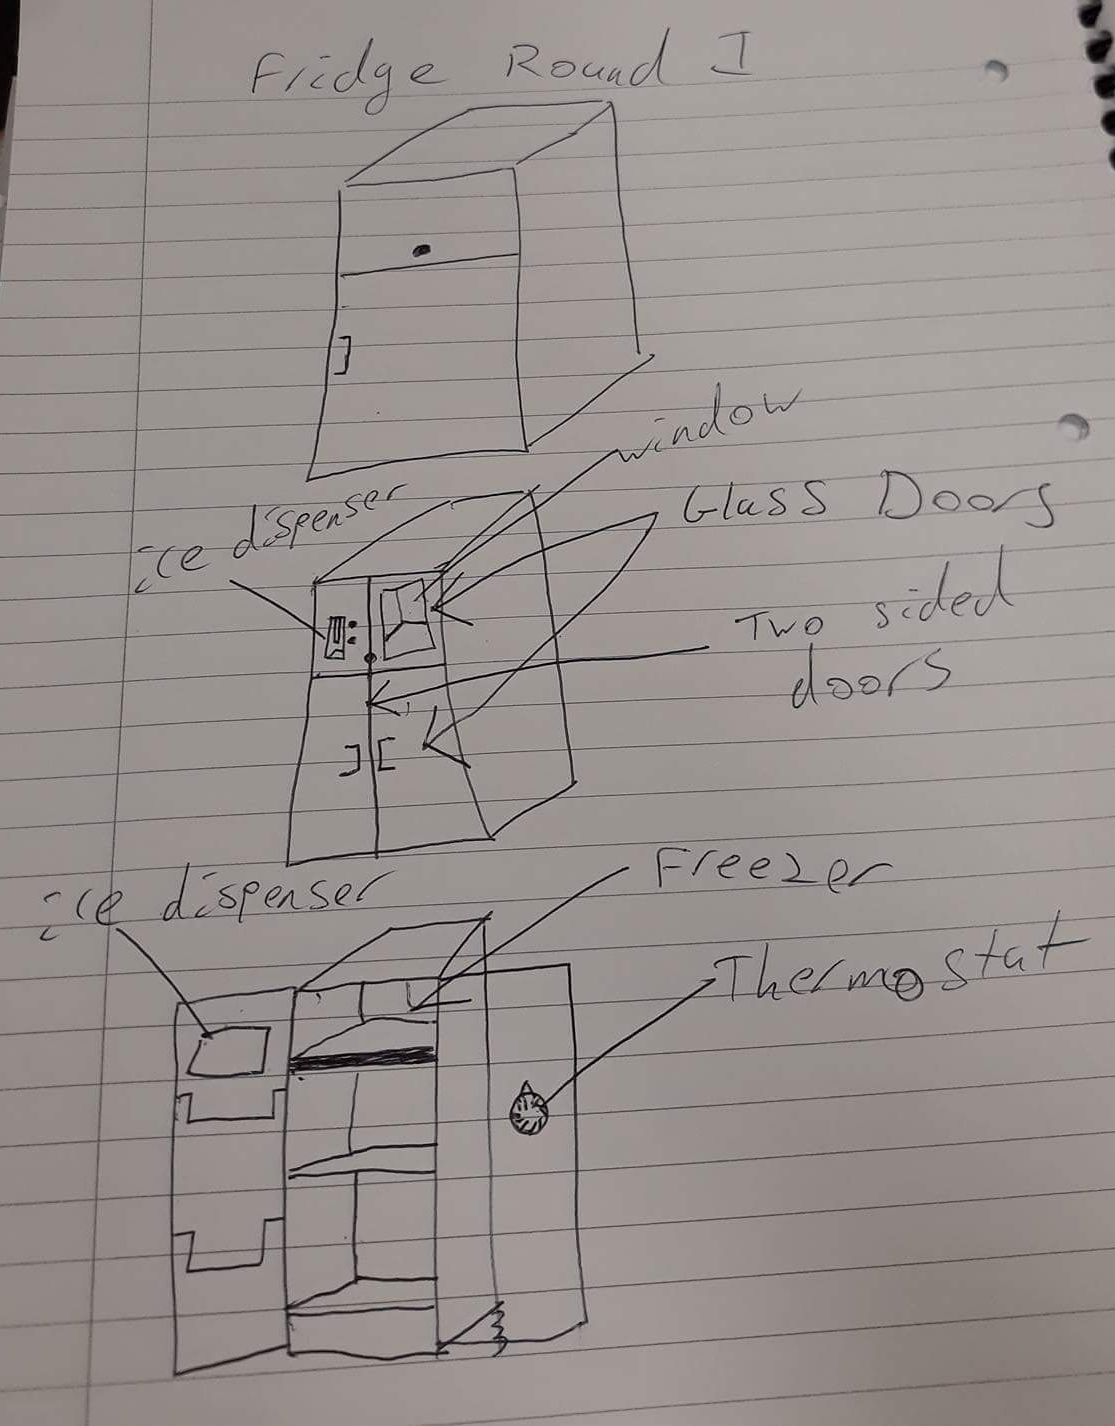 Fridge Round I
window
ice dispenser
Glass Doors
Two sided
doors
ice dispenser
Freezer
Thermostat